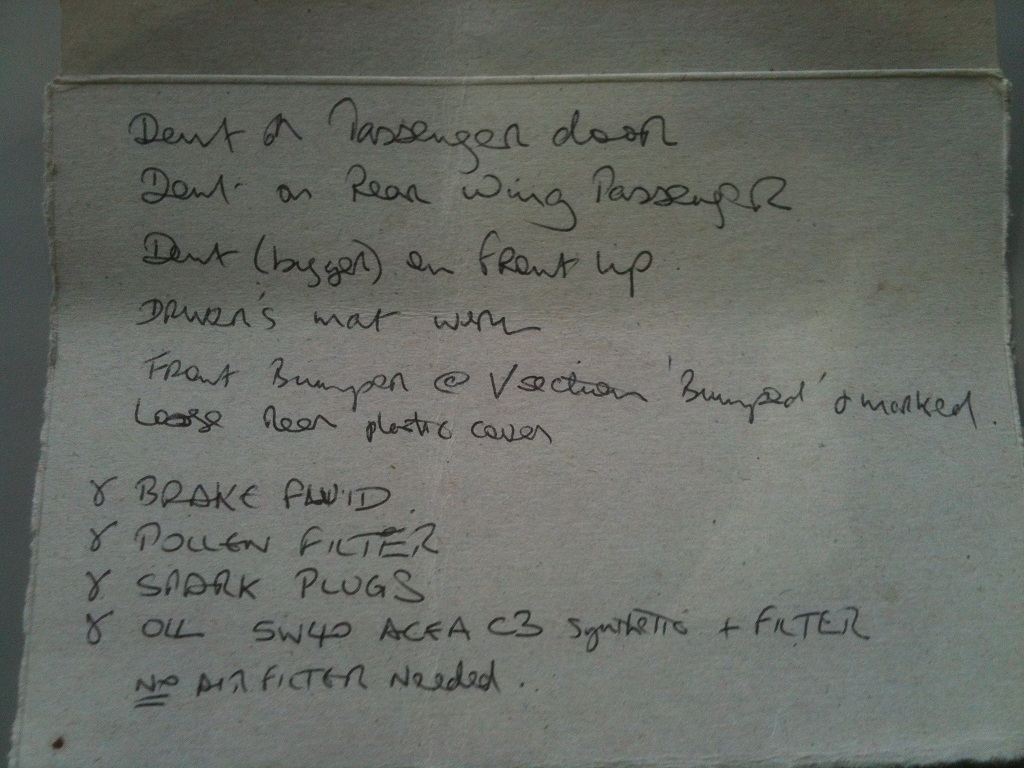 Dent on Passenger door
Dent on Rear Wing Passenger
Dent (bigger) on front lip
DRIVER'S mat worn
Front Bumper @ V section 'Bumped' & marked.
Loose Rear plastic cover
γ BRAKE FLUID.
γ POLLEN FILTER
γ SPARK PLUGS
γ OIL 5W40 ACEA C3 Synthetic + FILTER
NO AIR FILTER Needed.